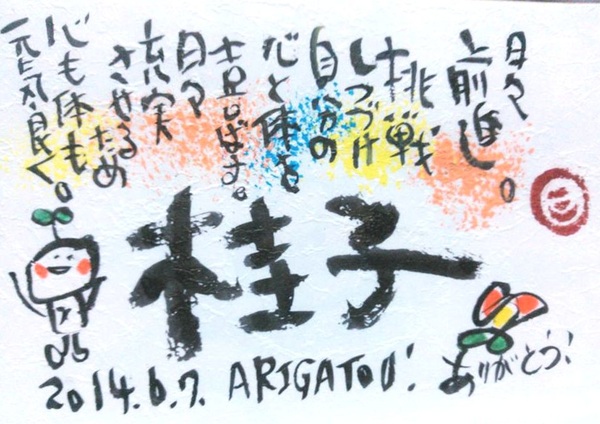 日々
前進。
挑戦
しつづけ
自分の
心と体を
喜ばす。
日々
充実
させるため
心も体も
元気で良く。
桂子
2014.6.7. ARIGATOU!
ありがとう!